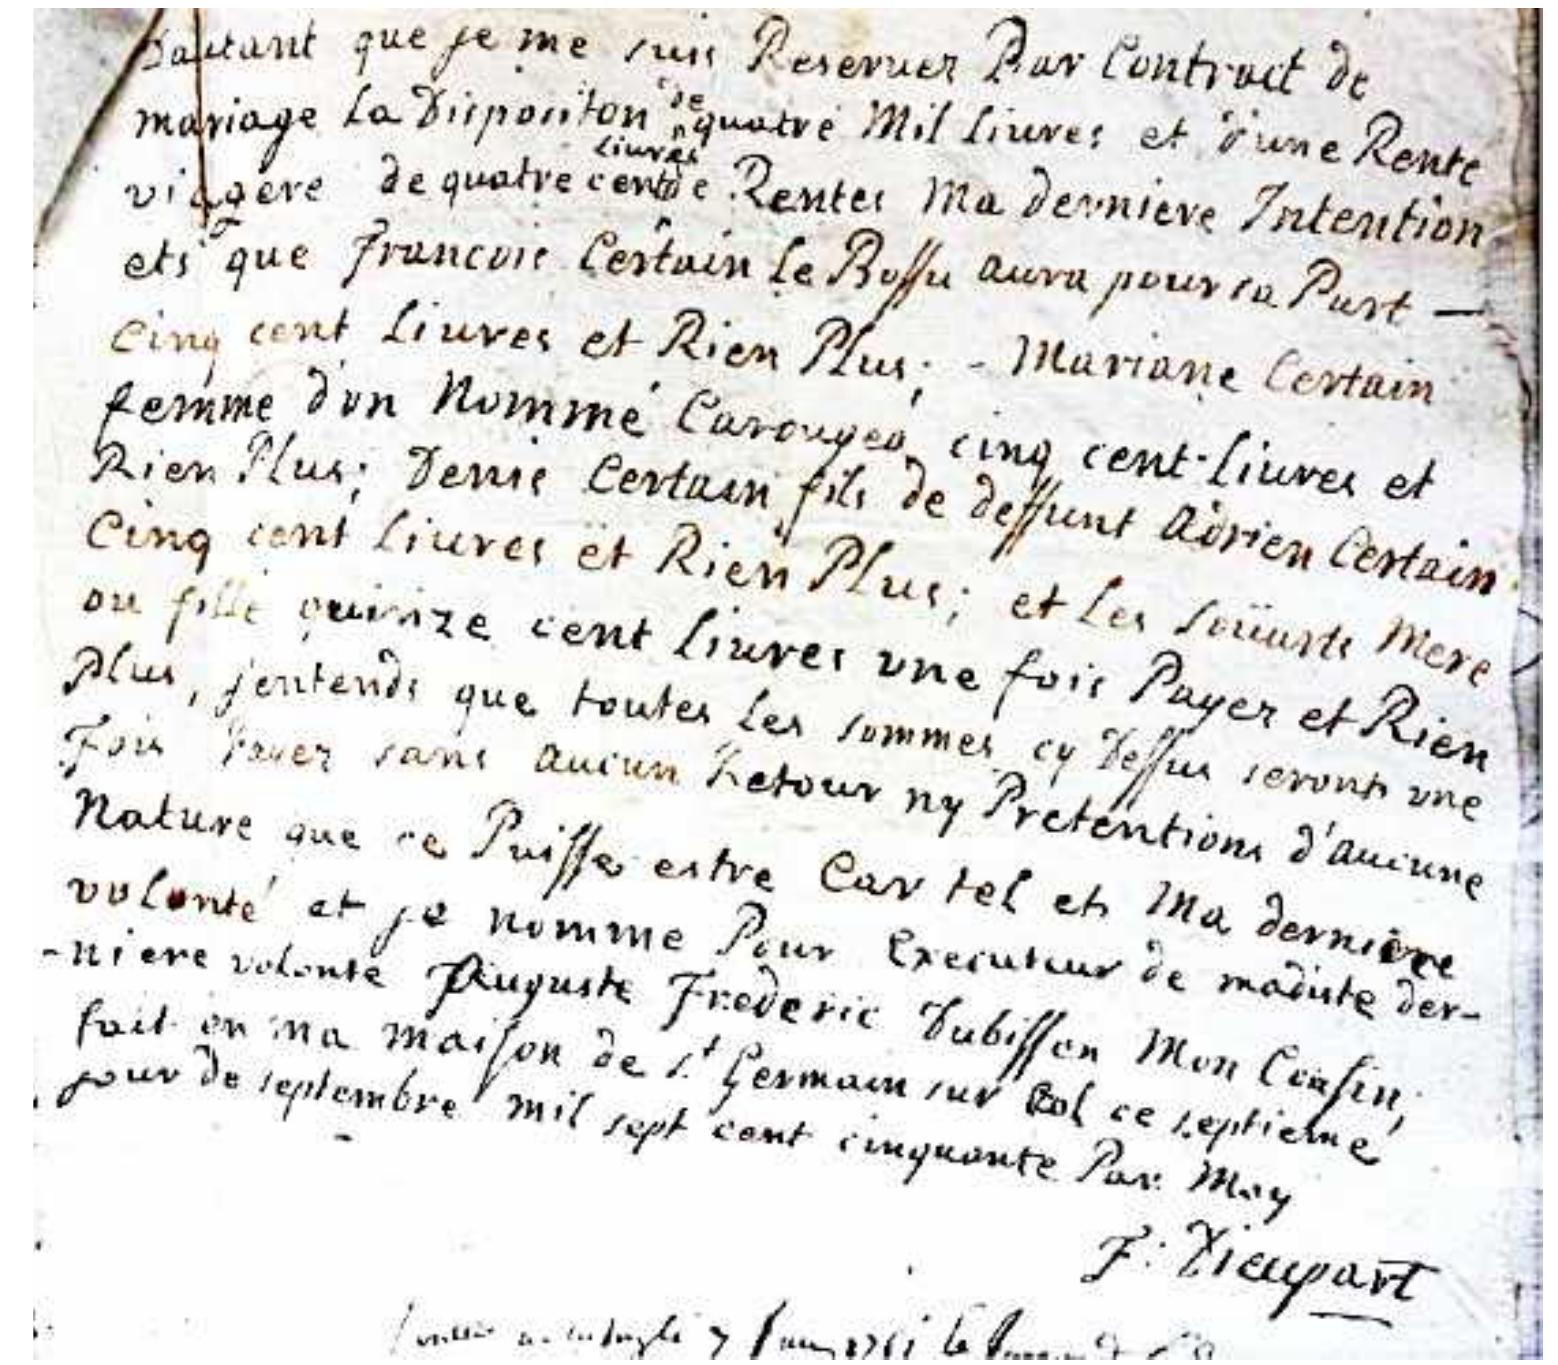 Dautant que je me suis Reseruer Par Contract de
mariage La Dispositon de quatre Mil Liures et d'une Rente
viagere de quatre cent liures de Rentes Ma derniere Intention
ets que Francois Certain Le Bossu aura pour sa Part —
Cinq cent Liures et Rien Plus; - Mariane Certain
femme d'on Nommé Carouges cinq cent Liures et
Rien Plus; Denis Certain fils de deffunt Adrien Certain
Cinq cent Liures et Rien Plus; et Les Mere
ou fille quinze cent Liures vne fois Payer et Rien
Plus, jentends que toutes Les sommes cy Dessus seront vne
Fois Payer sans aucun Retour ny Pretentions d'aucune
Nature que ce Puisse estre Car tel ets Ma derniere
volonté et je nomme Pour Executeur de madiste der-
-niere volonte Auguste Frederic Dubisson Mon Cousin,
fait en ma maison de st Germain sur ce septieme
jour de septembre mil sept cent cinquante Par Moy
F: Dieupart